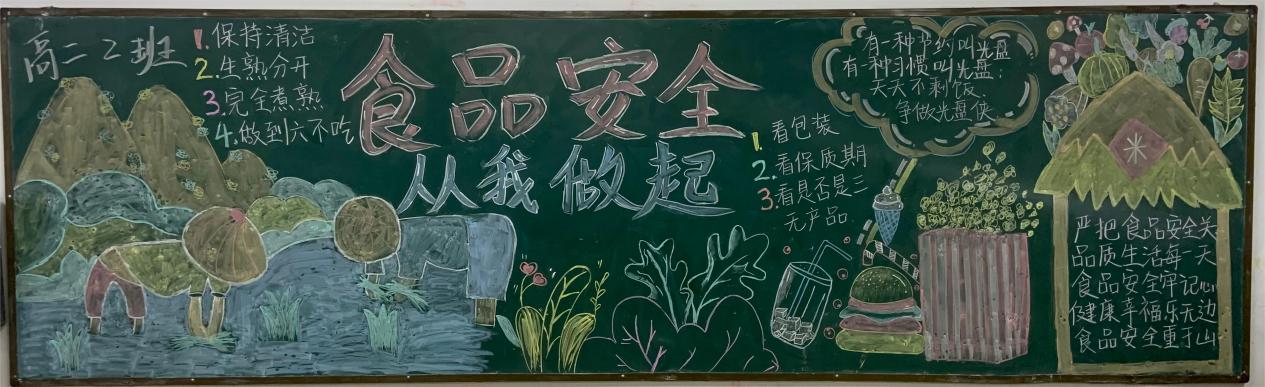 高二2班
1.保持清洁
2.生熟分开
3.完全煮熟
4.做到六不吃
食品安全
从我做起
1.看包装
2.看保质期
3.看是否是三
无产品.
有一种节约叫光盘
有一种习惯叫光盘;
天天不剩饭、
争做光盘侠
严把食品安全关
品质生活每一天
食品安全牢记心
健康幸福乐无边
食品安全重于山